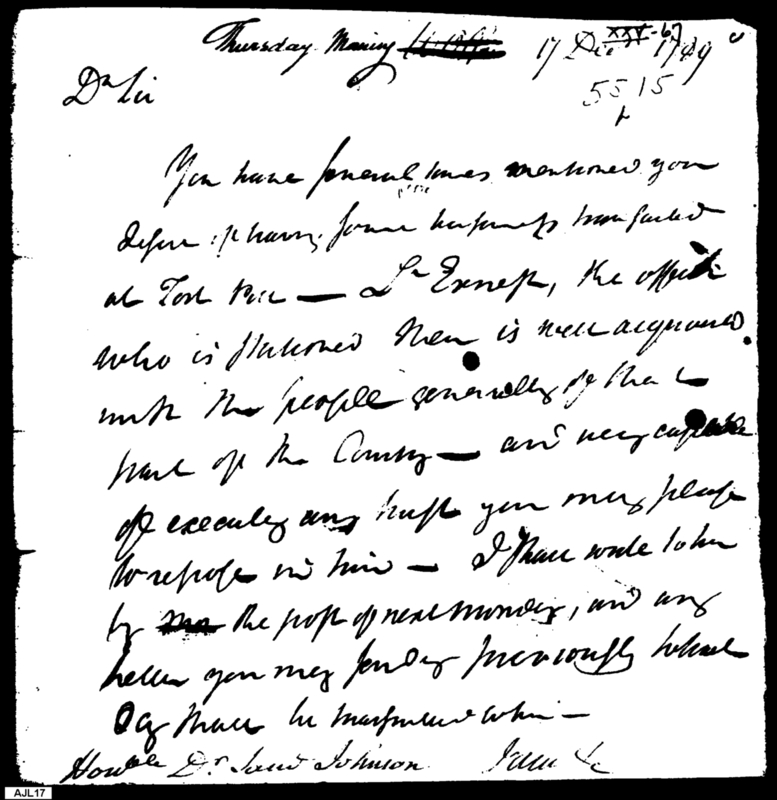 XXV-67
Thursday Morning 17 Dec 1789
5515
Dr Sir
You have several times mentioned your
desire of having some business transacted
at Fort Pitt — Lt Ernest, the officer
who is stationed there is well acquainted
with the people generally of that
part of the Country — and very capable
of executing any trust you may please
to repose in him — I shall write to him
by the post of next monday, and any
letter you may send me previously to that
day shall be transmitted to him —
Honble Dr Saml Johnson I am &c
AJL17